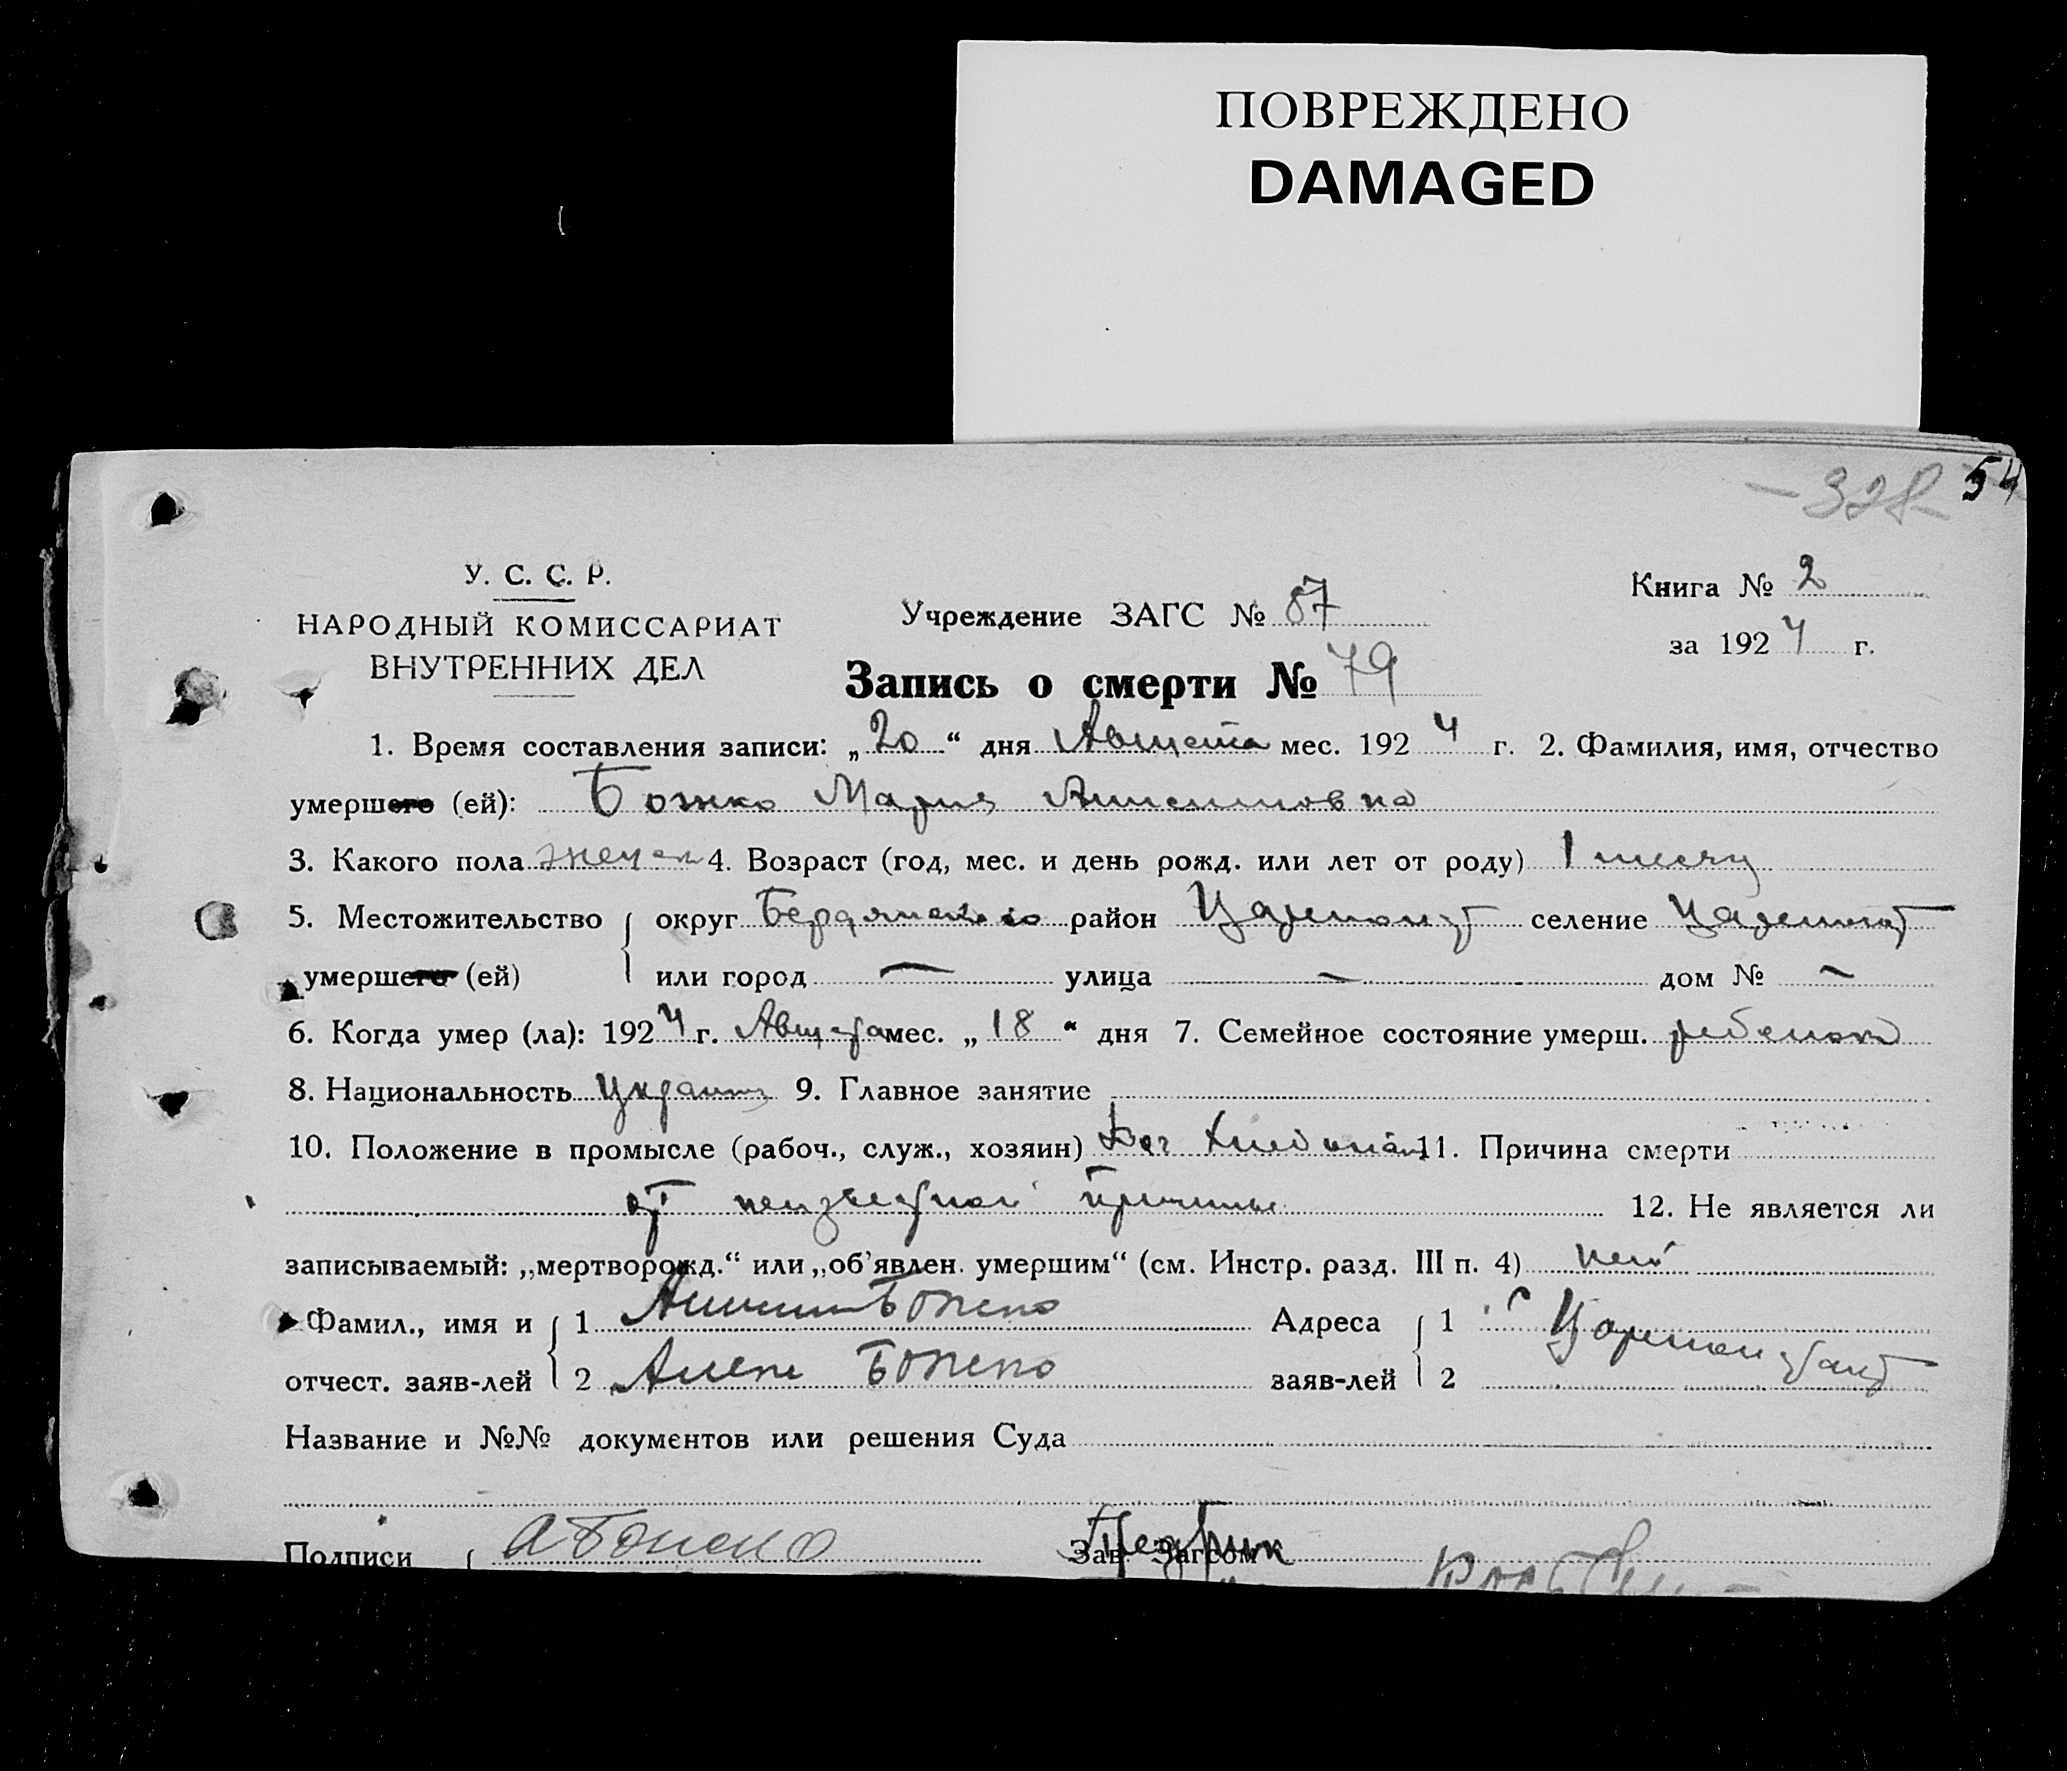 ПОВРЕЖДЕНО
DAMAGED
54
328
У. С. С. Р.
НАРОДНЫЙ КОМИССАРИАТ
ВНУТРЕННИХ ДЕЛ
Учреждение ЗАГС № 87
Книга № 2
за 1924 г.
Запись о смерти № 79
1. Время составления записи: „20“ дня Августа мес. 1924 г. 2. Фамилия, имя, отчество
умершего (ей): Божко Мария
3. Какого пола 4. Возраст (год, мес. и день рожд. или лет от роду) 1 месяц
5. Местожительство округ район селение
умершего (ей) или город — улица — дом № —
6. Когда умер (ла): 1924 г. Августа мес. „18“ дня 7. Семейное состояние умерш. ребенок
8. Национальность 9. Главное занятие
10. Положение в промысле (рабоч., служ., хозяин) 11. Причина смерти
от причины 12. Не является ли
записываемый: „мертворожд.“ или „об'явлен. умершим“ (см. Инстр. разд. III п. 4) нет
Фамил., имя и 1 Божко Адреса 1
отчест. заяв-лей 2 Божко заяв-лей 2
Название и №№ документов или решения Суда
Подписи А Божко Зав. Загсом